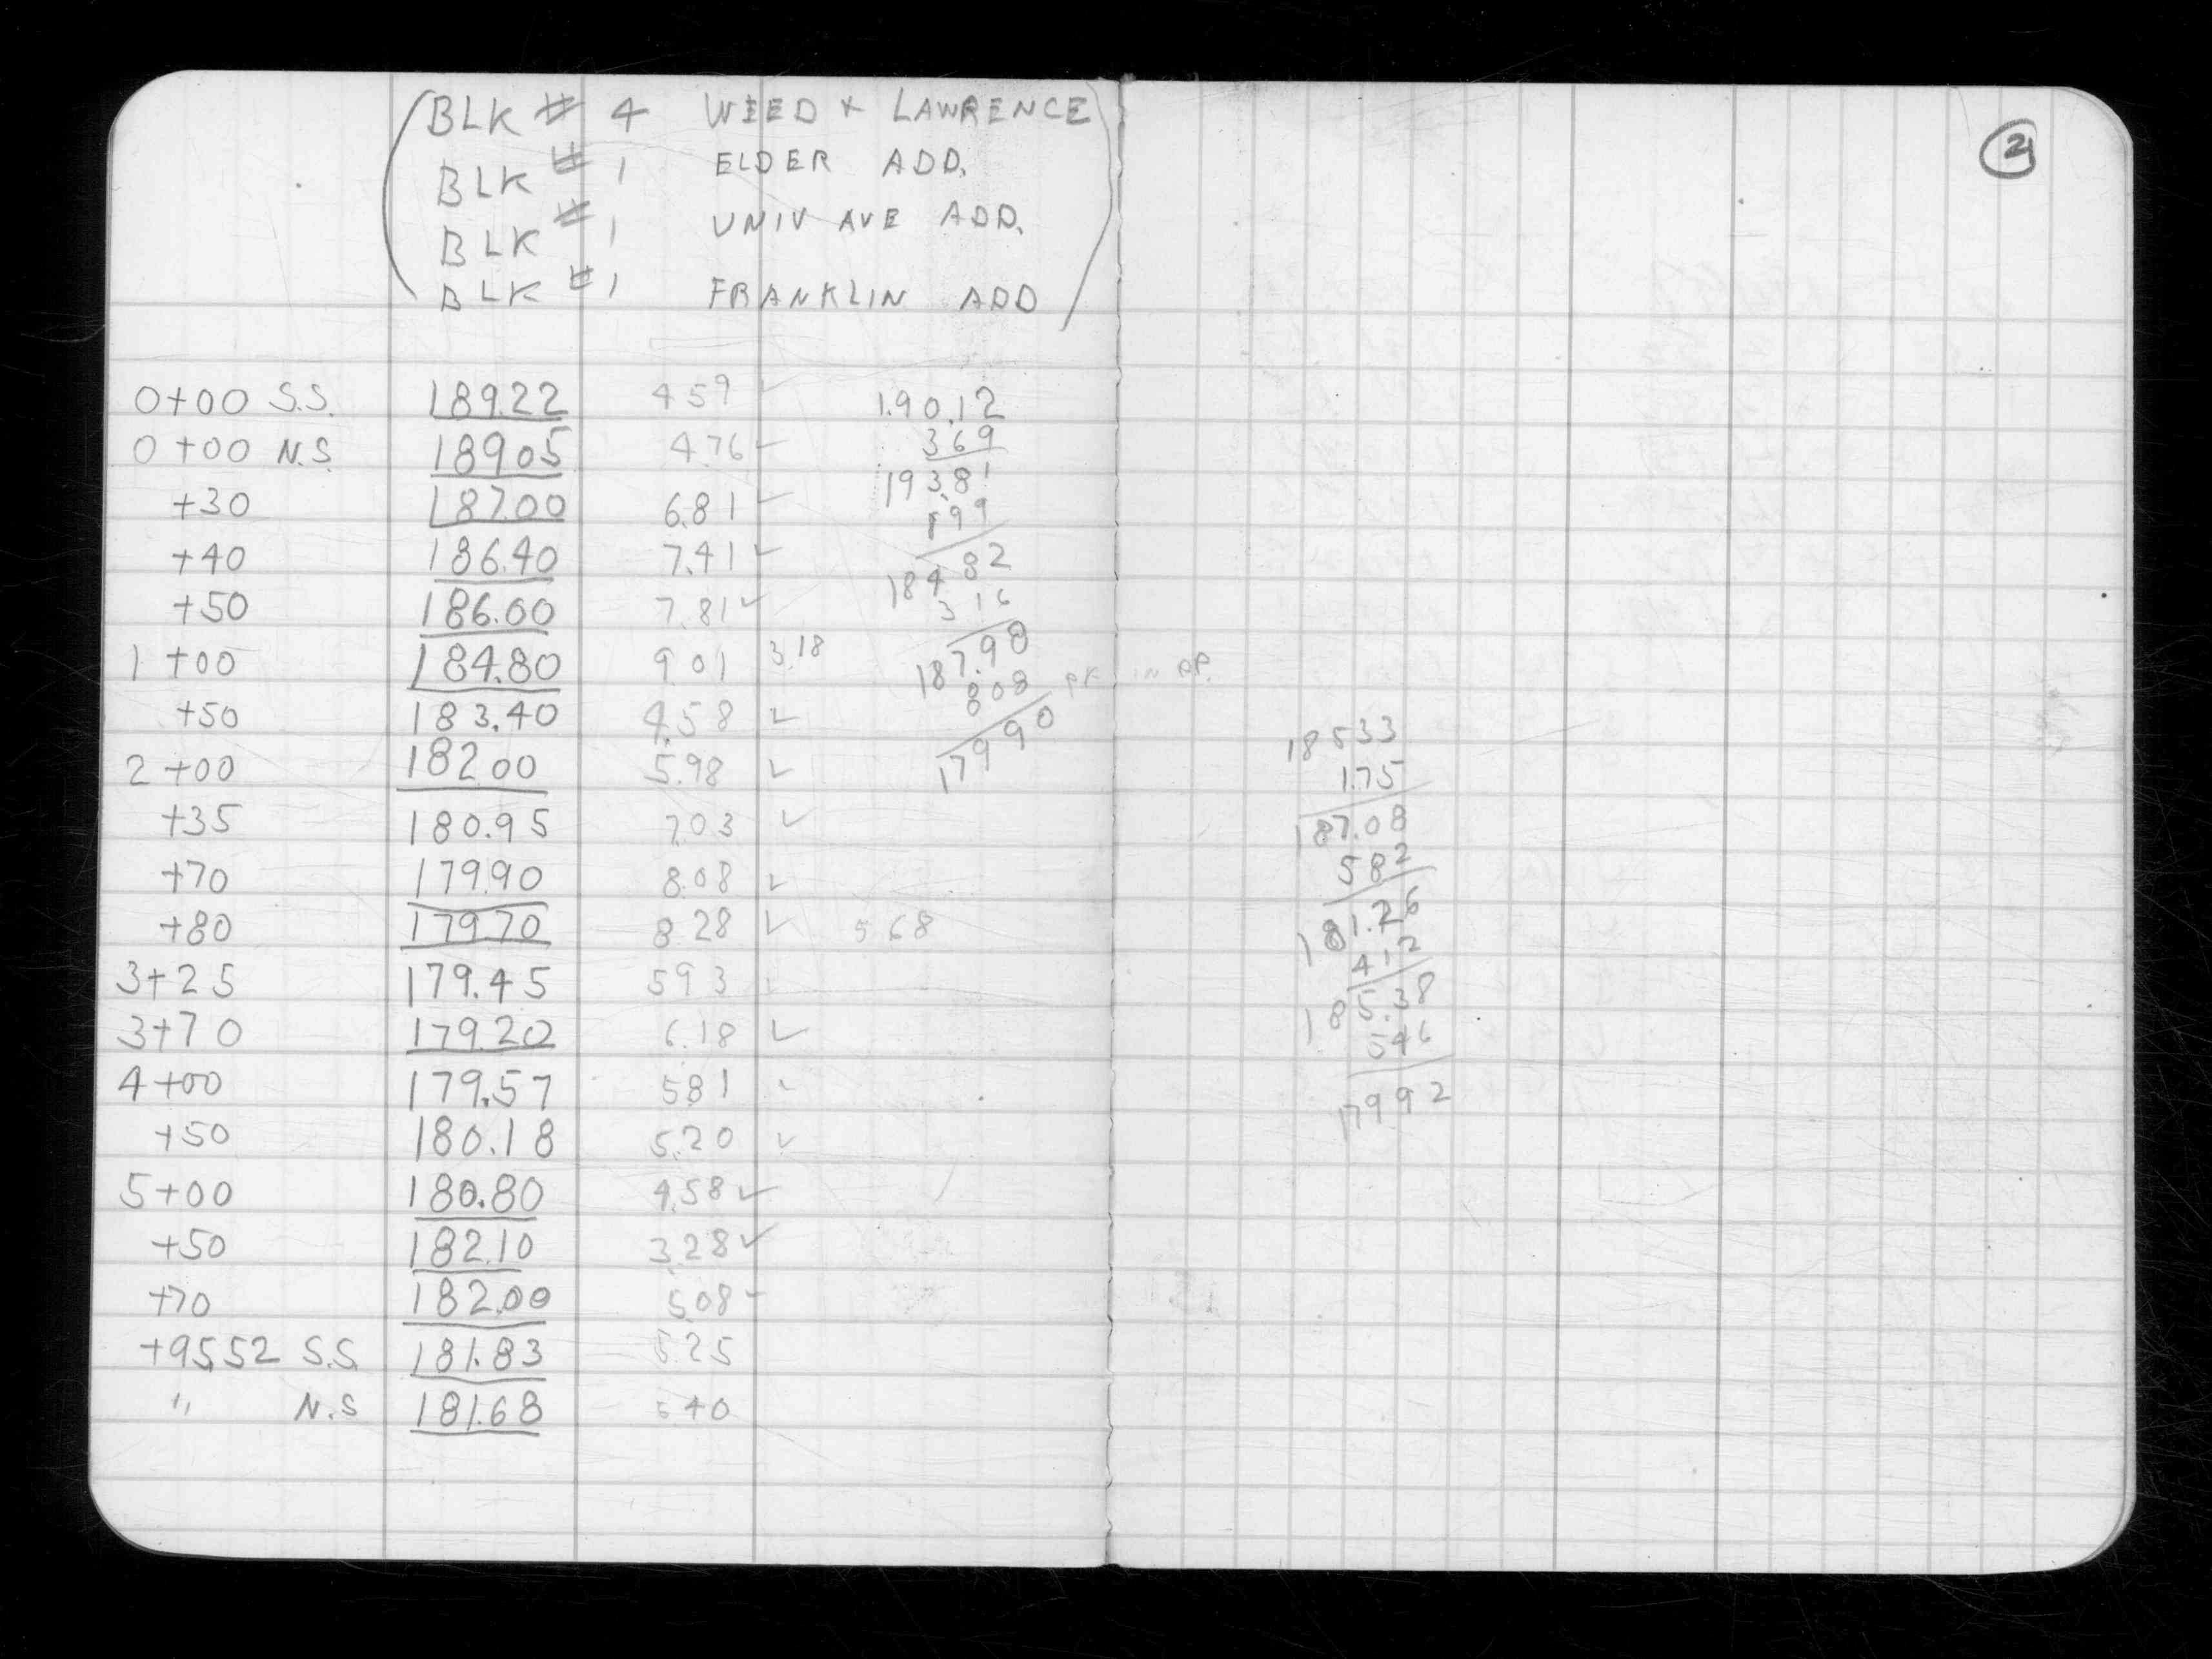 BLK # 4 WEED + LAWRENCE
BLK # 1 ELDER ADD.
BLK # 1 UNIV AVE ADD.
BLK # 1 FRANKLIN ADD
2
0+00 S.S. 189.22 4.59 190.12
0+00 N.S. 189.05 4.76 ✓ 3.69
193.81
+30 187.00 6.81 ✓ 899
+40 186.40 7.41 ✓ 184.82
+50 186.00 7.81 ✓ 3.16
1+00 184.80 9.01 3.18 187.98
808 PK IN PP.
+50 183.40 4.58 ✓ 179.90
2+00 182.00 5.98 ✓
+35 180.95 7.03 ✓
+70 179.90 8.08 ✓
+80 179.70 8.28 ✓ 5.68
3+25 179.45 5.93 ✓
3+70 179.20 6.18 ✓
4+00 179.57 5.81 ✓
+50 180.18 5.20 ✓
5+00 180.80 4.58 ✓
+50 182.10 3.28 ✓
+70 182.00 5.08 ✓
+95.52 S.S. 181.83 5.25
" N.S 181.68 5.40
185.33
1.75
187.08
5.82
181.26
4.12
185.38
5.46
179.92